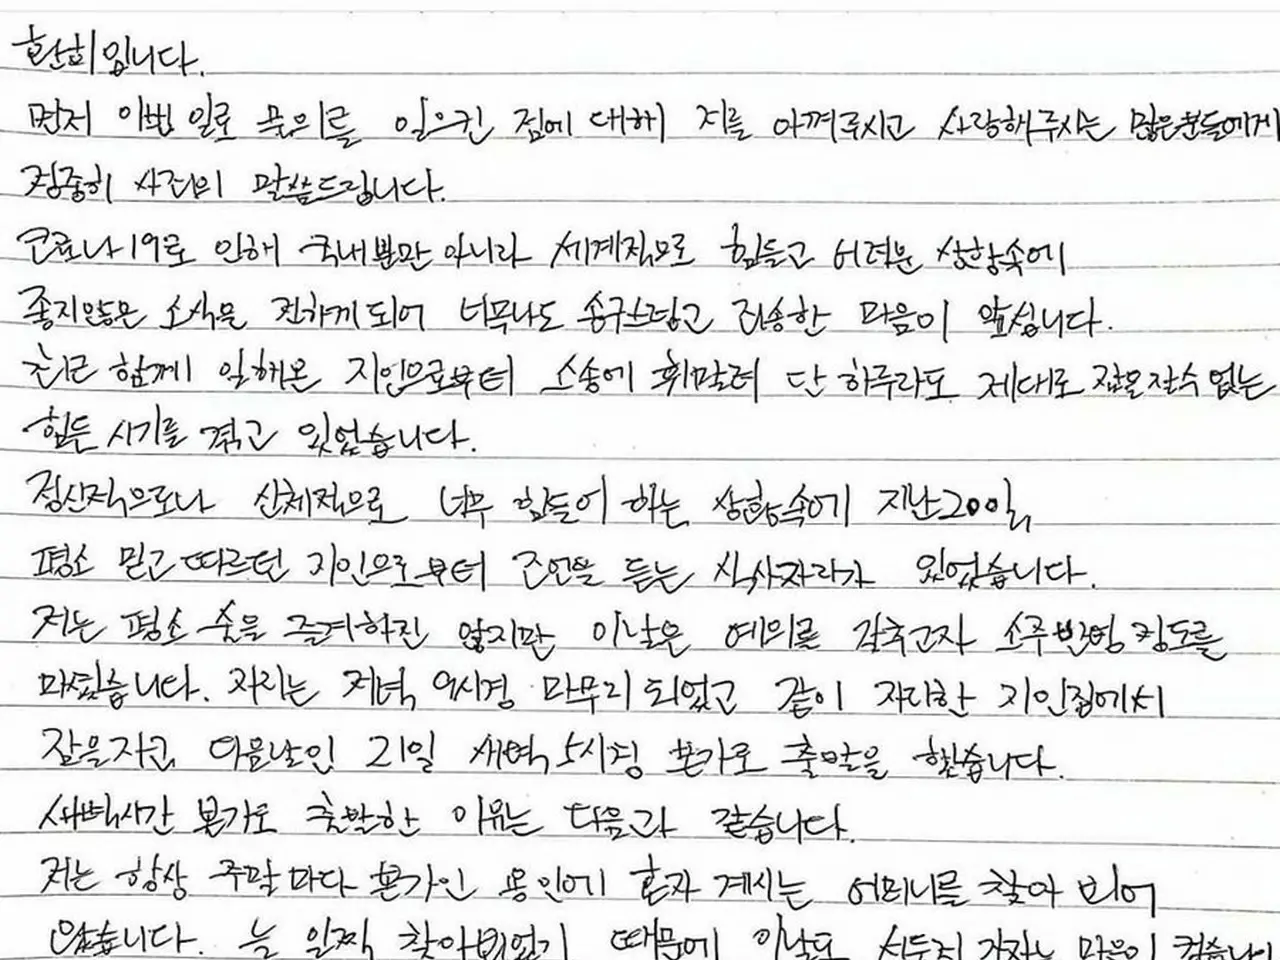 환희입니다.
먼저 이번 일로 물의를 일으킨 점에 대해 저를 아껴주시고 사랑해주시는 많은분들에게
정중히 사죄의 말씀드립니다.
코로나19로 인해 국내뿐만 아니라 세계적으로 힘들고 어려운 상황속에
좋지않은 소식을 전하게되어 너무나도 송구스럽고 죄송한 마음이 앞섭니다.
최근 함께 일해온 지인으로부터 소송에 휘말려 단 하루라도 제대로 잠을 잘수 없는
힘든 시기를 겪고 있었습니다.
정신적으로나 신체적으로 너무 힘들어 하는 상황속에 지난20일,
평소 믿고 따르던 지인으로부터 조언을 듣는 식사자리가 있었습니다.
저는 평소 술을 즐겨하진 않지만 이날은 예의를 갖추고자 소주반병 정도를
마셨습니다. 자리는 저녁 9시경 마무리 되었고 같이 자리한 지인집에서
잠을자고, 다음날인 21일 새벽 5시경 본가로 출발을 했습니다.
새벽시간 본가로 출발한 이유는 다음과 같습니다.
저는 항상 주말 마다 본가인 용인에 혼자 계시는 어머니를 찾아 뵈어
왔습니다. 늘 일찍 찾아뵈었기 때문에 이날도 서두져 가자는 마음이 컸습니다